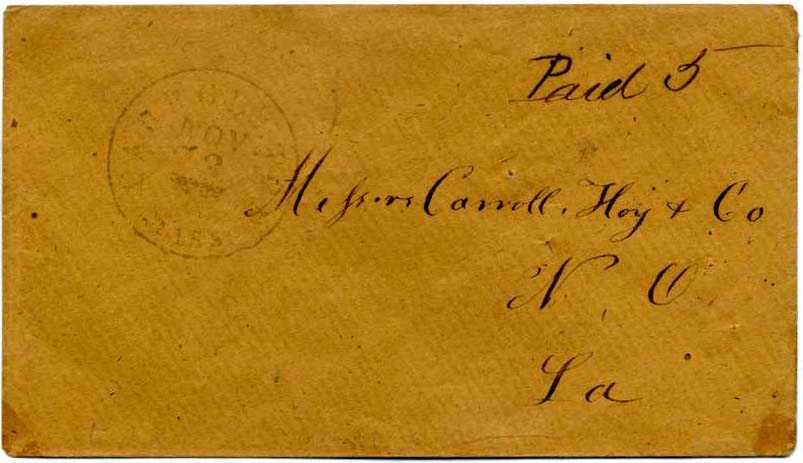 Paid 5
NOV
MISS
Messrs Carroll, Hoy & Co
N. O.
La